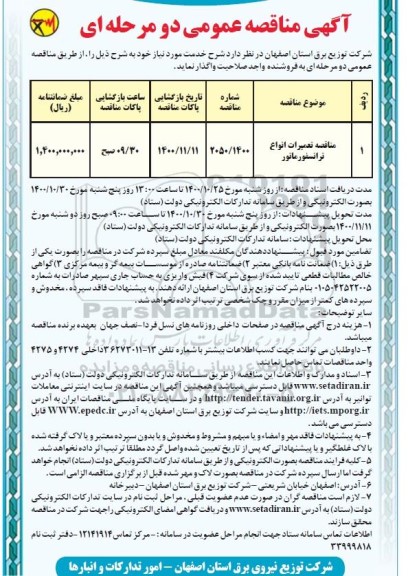 آگهی مناقصه عمومی دو مرحله ای
شرکت توزیع برق استان اصفهان در نظر دارد شرح خدمت مورد نیاز خود به شرح ذیل را، از طریق مناقصه
عمومی دو مرحله ای به فروشنده واجد صلاحیت واگذار نماید.
ردیف
موضوع مناقصه
شماره مناقصه
تاریخ بازگشایی پاکات مناقصه
ساعت بازگشایی پاکات مناقصه
مبلغ ضمانتنامه (ریال)
۱
مناقصه تعمیرات انواع ترانسفورماتور
۲۰۵۰/۱۴۰۰
۱۴۰۰/۱۱/۱۱
۰۹/۳۰ صبح
۱,۴۰۰,۰۰۰,۰۰۰
مدت دریافت اسناد مناقصه: از روز شنبه مورخ ۱۴۰۰/۱۰/۲۵ تا ساعت ۱۳:۰۰ روز پنج شنبه مورخ ۱۴۰۰/۱۰/۳۰
بصورت الکترونیکی و از طریق سامانه تدارکات الکترونیکی دولت (ستاد)
مدت تحویل پیشنهادات: از روز پنج شنبه مورخ ۱۴۰۰/۱۰/۳۰ تا ساعت ۰۹:۰۰ صبح روز دو شنبه مورخ
۱۴۰۰/۱۱/۱۱ بصورت الکترونیکی و از طریق سامانه تدارکات الکترونیکی دولت (ستاد)
محل تحویل پیشنهادات: سامانه تدارکات الکترونیکی دولت (ستاد)
تضامین مورد قبول: پیشنهاددهندگان مکلفند معادل مبلغ سپرده شرکت در مناقصه را بصورت یکی از
طرق ذیل: ۱) ضمانت نامه بانکی معتبر ۲) ضمانتنامه صادره از موسسات بیمه گر و بیمه مرکزی ۳) گواهی
خالص مطالبات قطعی تایید شده از سوی شرکت ۴) فیش واریزی به حساب جاری سپهر صادرات به شماره
بنام شرکت توزیع برق استان اصفهان ارائه دهند. به پیشنهادات فاقد سپرده، مخدوش و
سپرده های کمتر از میزان مقرر و چک شخصی ترتیب اثر داده نخواهد شد.
سایر توضیحات:
۱- هزینه درج آگهی مناقصه در صفحات داخلی روزنامه های نسل فردا - نصف جهان بعهده برنده مناقصه
میباشد.
۲- داوطلبان می توانند جهت کسب اطلاعات بیشتر با شماره تلفن ۱۳-۳۶۲۷۳۰۱۱ داخلی ۴۲۷۴ و ۴۲۷۵
واحد مناقصات تماس حاصل نمایند.
۳- اسناد و مدارک و اطلاعات این مناقصه از طریق سامانه تدارکات الکترونیکی دولت (ستاد) به آدرس
www.setadiran.ir قابل دسترسی میباشد و همچنین آگهی این مناقصه در سایت اینترنتی معاملات
توانیر به آدرس http://tender.tavanir.org.ir و در سایت پایگاه ملی مناقصات ایران به آدرس
http://iets.mporg.ir و سایت شرکت توزیع برق استان اصفهان به آدرس WWW.epedc.ir قابل
دسترسی می باشد.
۴- به پیشنهادات فاقد مهر و امضاء و یا مبهم و مشروط و مخدوش و یا بدون سپرده معتبر و یا لاک گرفته شده
یا لاک غلطگیر و یا پیشنهاداتی که پس از تاریخ تعیین شده واصل گردد مطلقا ترتیب اثر داده نخواهد شد.
۵- کلیه فرایند مناقصه بصورت الکترونیکی و از طریق سامانه تدارکات الکترونیکی دولت (ستاد) انجام خواهد
گرفت اما ارسال سپرده شرکت در مناقصه بصورت لاک و مهر شده قبل از برگزاری مناقصه الزامی است.
۶- آدرس: اصفهان خیابان شریعتی - شرکت توزیع برق استان اصفهان - دبیرخانه
۷- لازم است مناقصه گران در صورت عدم عضویت قبلی، مراحل ثبت نام در سایت تدارکات الکترونیکی
دولت (ستاد) به آدرس www.setadiran.ir و دریافت گواهی امضای الکترونیکی را جهت شرکت در مناقصه
محقق سازند.
اطلاعات تماس سامانه ستاد جهت انجام مراحل عضویت در سامانه: - مرکز تماس: ۱۳۱۴۱۹۱۴ - دفتر ثبت نام
۳۳۹۹۹۸۱۸
شرکت توزیع نیروی برق استان اصفهان - امور تدارکات و انبارها